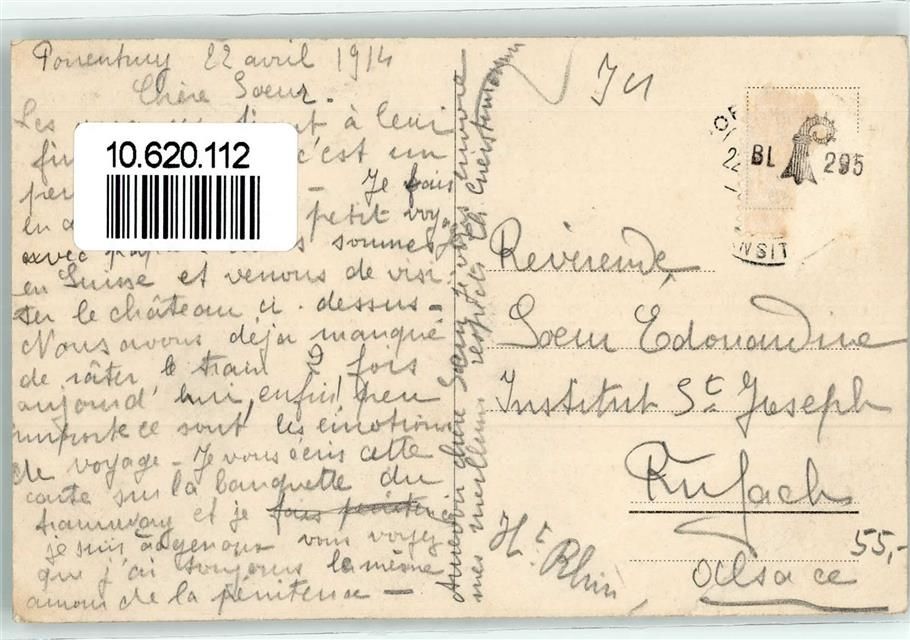 Porrentruy 22 avril 1914
Chère Soeur.
Les à leur
fin c'est un
peu - Je fais
en petit voya
avec sommes
en Suisse et venons de visi
ter le château ci-dessus -
Nous avons déja manqué
de râter le train 10 fois
aujourd'hui, enfin peu
importe ce sont les émotions
de voyage - Je vous écris cette
carte sur la banquette du
tramway et je fais pénitence
je suis à genoux vous voyez
que j'ai toujours le même
amour de la pénitence -
Aurevoir chère Soeur je vous envoie
mes meilleurs respects
10.620.112
BL 295
NSIT
Révérende
Soeur Edouardine
Institut St. Joseph
Rufach
Ht. Rhin
Alsace
55,-